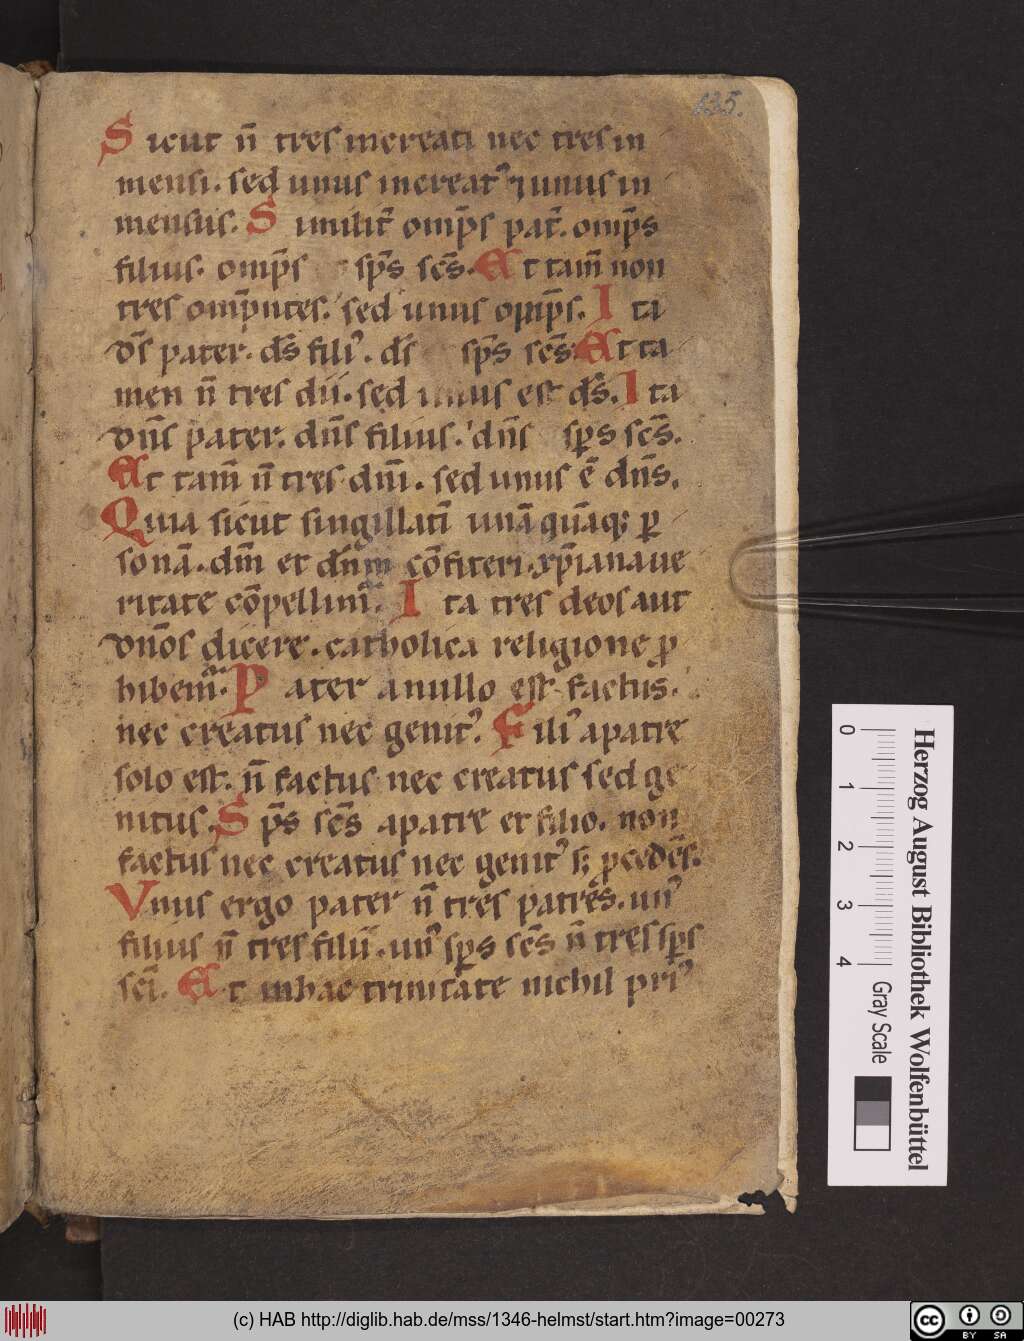 135.
Sicut n̄ tres increati nec tres in
mensi. sed unus increat᾽ ⁊ unus in
mensus. Similit̄ omp̄s pat̄. omp̄s
filius. omp̄s sp̄s sc̄s. Et tam̄ non
tres omp̄ntes. sed unus omp̄s. Ita
d̄s pater. d̄s fili᾽. d̄s sp̄s sc̄s. Et ta
men n̄ tres dii. sed unus est d̄s. Ita
dn̄s pater. dn̄s filius. dn̄s sp̄s sc̄s.
Et tam̄ n̄ tres dn̄i. sed unus ē dn̄s.
Quia sicut singillatī unā quāq; ꝑ
sonā. dm̄ et dn̄m cōfiteri. xp̄iana ue
ritate cōpellim᾽. Ita tres deos aut
dn̄os dicere. catholica religione ꝓ
hibem᾽. Pater a nullo est factus.
nec creatus nec genit᾽. Fili᾽ a patre
solo est. n̄ factus nec creatus sed ge
nitus. Sp̄s sc̄s a patre et filio. non
factus nec creatus nec genit᾽ s; ꝓcedēs.
Unus ergo pater n̄ tres patres. un᾽
filius n̄ tres filii. un᾽ sp̄s sc̄s n̄ tres sp̄s
sc̄i. Et in hac trinitate nichil pri᾽
0 1 2 3 4
Gray Scale
Herzog August Bibliothek Wolfenbüttel
(c) HAB http://diglib.hab.de/mss/1346-helmst/start.htm?image=00273
cc BY SA